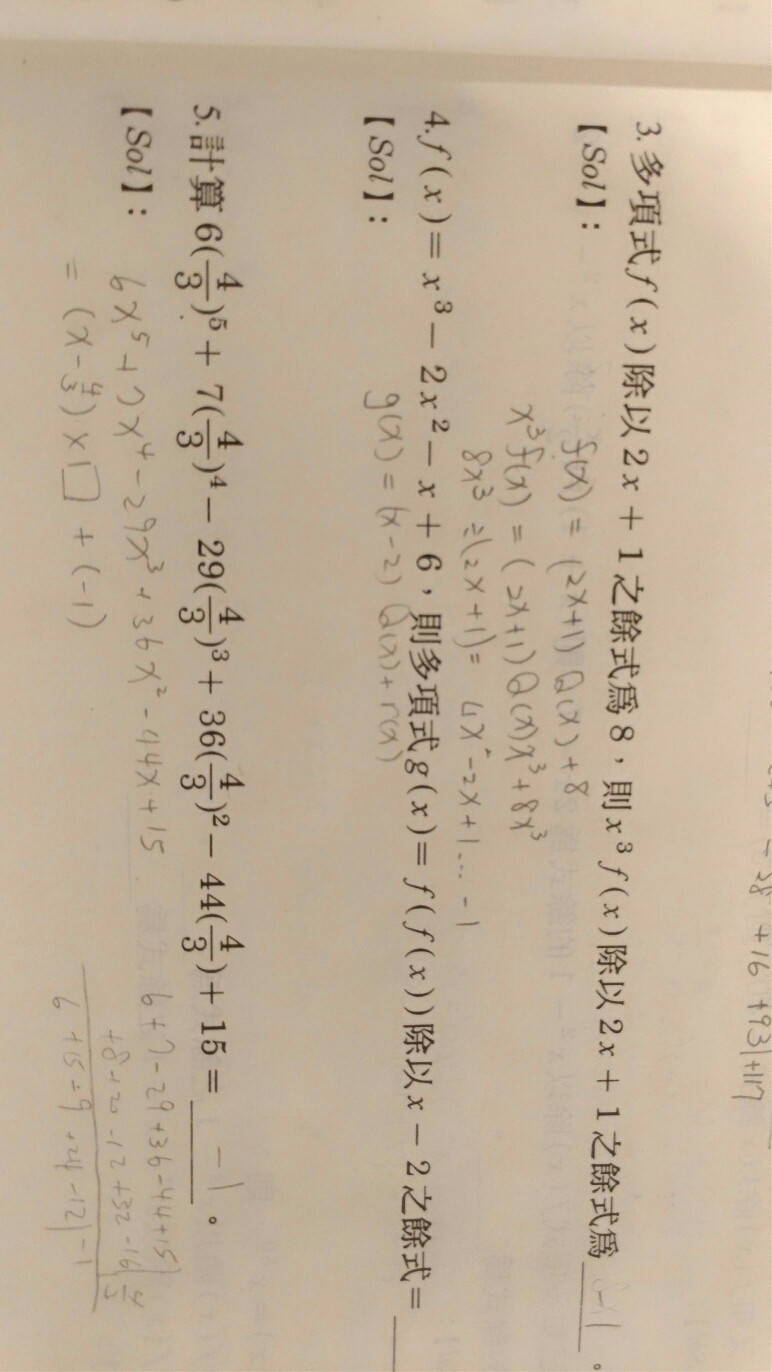 -38 +16 +93|+117
3. 多項式 f(x) 除以 2x+1 之餘式為 8，則 x³f(x) 除以 2x+1 之餘式為 -1 。
【Sol】:
f(x) = (2x+1) Q(x) + 8
x³f(x) = (2x+1) Q(x) x³ + 8x³
8x³ ÷ (2x+1) = 4x²-2x+1 ... -1
4. f(x) = x³ - 2x² - x + 6，則多項式 g(x) = f(f(x)) 除以 x-2 之餘式 = ____
【Sol】:
g(x) = (x-2) Q(x) + r(x)
5. 計算 6(4/3)⁵ + 7(4/3)⁴ - 29(4/3)³ + 36(4/3)² - 44(4/3) + 15 = -1 。
【Sol】:
6x⁵ + 7x⁴ - 29x³ + 36x² - 44x + 15
= (x - 4/3) × □ + (-1)
6 + 7 - 29 + 36 - 44 + 15|
+8 + 20 - 12 + 32 - 16| 4/3
6 + 15 - 9 + 24 - 12| - 1